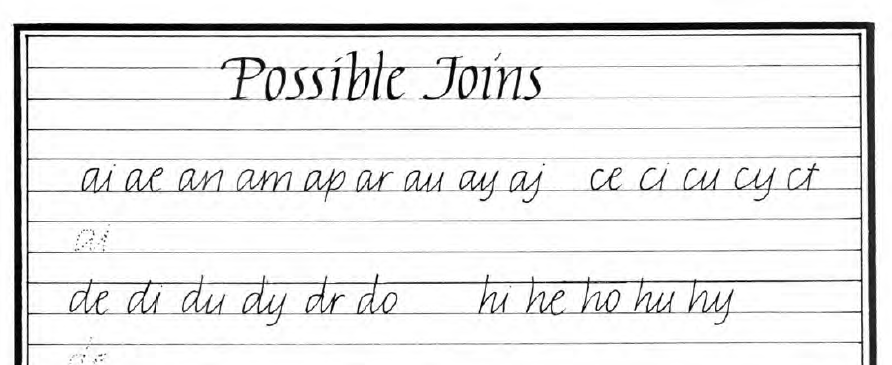 Possible Joins
ai ae an am ap ar au ay aj ce ci cu cy ct
ai
de di du dy dr do hi he ho hu hy
de